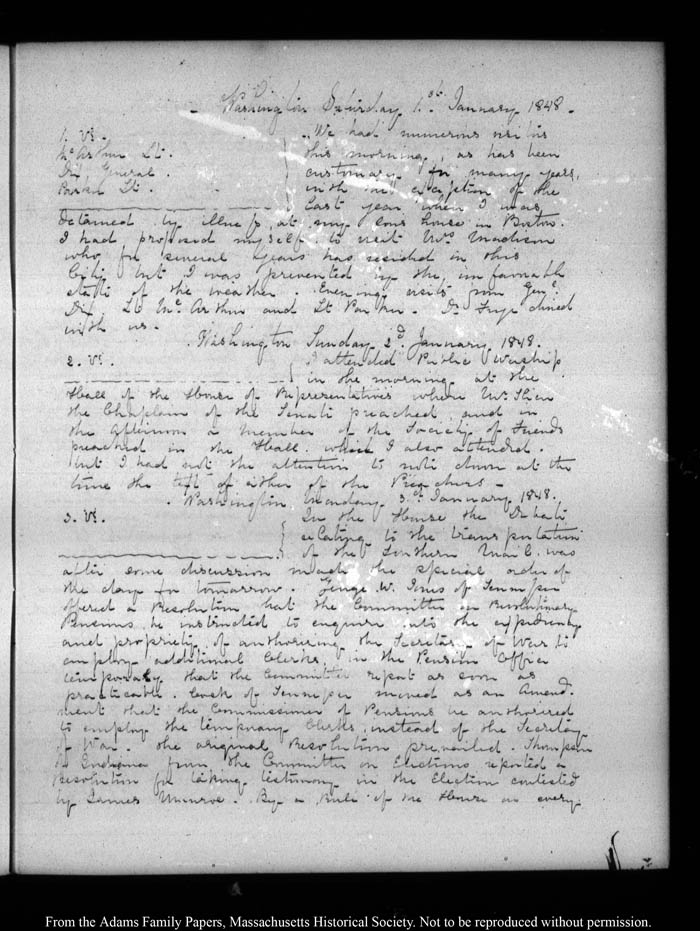 Washington Saturday 1.st January 1848.
1. VI.
McArthur Lt.
Dix, General.
Parker Lt.
We had numerous visits
this morning, as has been
customary for many years,
with the exception of the
last year when I was
detained by illness, at my sons house in Boston.
I had proposed myself to visit Mrs Madison
who for several years has resided in this
City but I was prevented by the unfavorable
state of the weather. Evening visits from Genl.
Dix Lt McArthur and Lt Parker. Dr Frye dined
with us.
Washington Sunday 2d. January 1848.
2. VI.
I attended Public Worship
in the morning at the
Hall of the House of Representatives where Mr
the Chaplain of the Senate preached, and in
the afternoon a member of the Society of Friends
preached in the Hall. which I also attended.
but I had not the attention to note down at the
time the text of either of the Preachers.
Washington Monday 3d. January 1848.
3. VI.
In the House the Debate
relating to the transportation
of the Southern Mail. was
after some discussion made the special order of
the day for tomorrow. George W. Jones of Tennessee
offered a Resolution that the Committee on Revolutionary
Pensions, be instructed to enquire into the expediency
and propriety of authorizing the Secretary of War to
employ additional Clerks, in the Pension Office
temporaly that the Committee report as soon as
practicable. Cocke of Tennessee moved as an Amend-
ment that the Commissioner of Pensions be authorized
to employ the temporary Clerks, instead of the Secretary
of War. the original Resolution prevailed. Thompson
of Indiana from the Committee on Elections reported a
Resolution for taking testimony in the Election contested
by James Monroe. By a Rule of the House on every
From the Adams Family Papers, Massachusetts Historical Society. Not to be reproduced without permission.